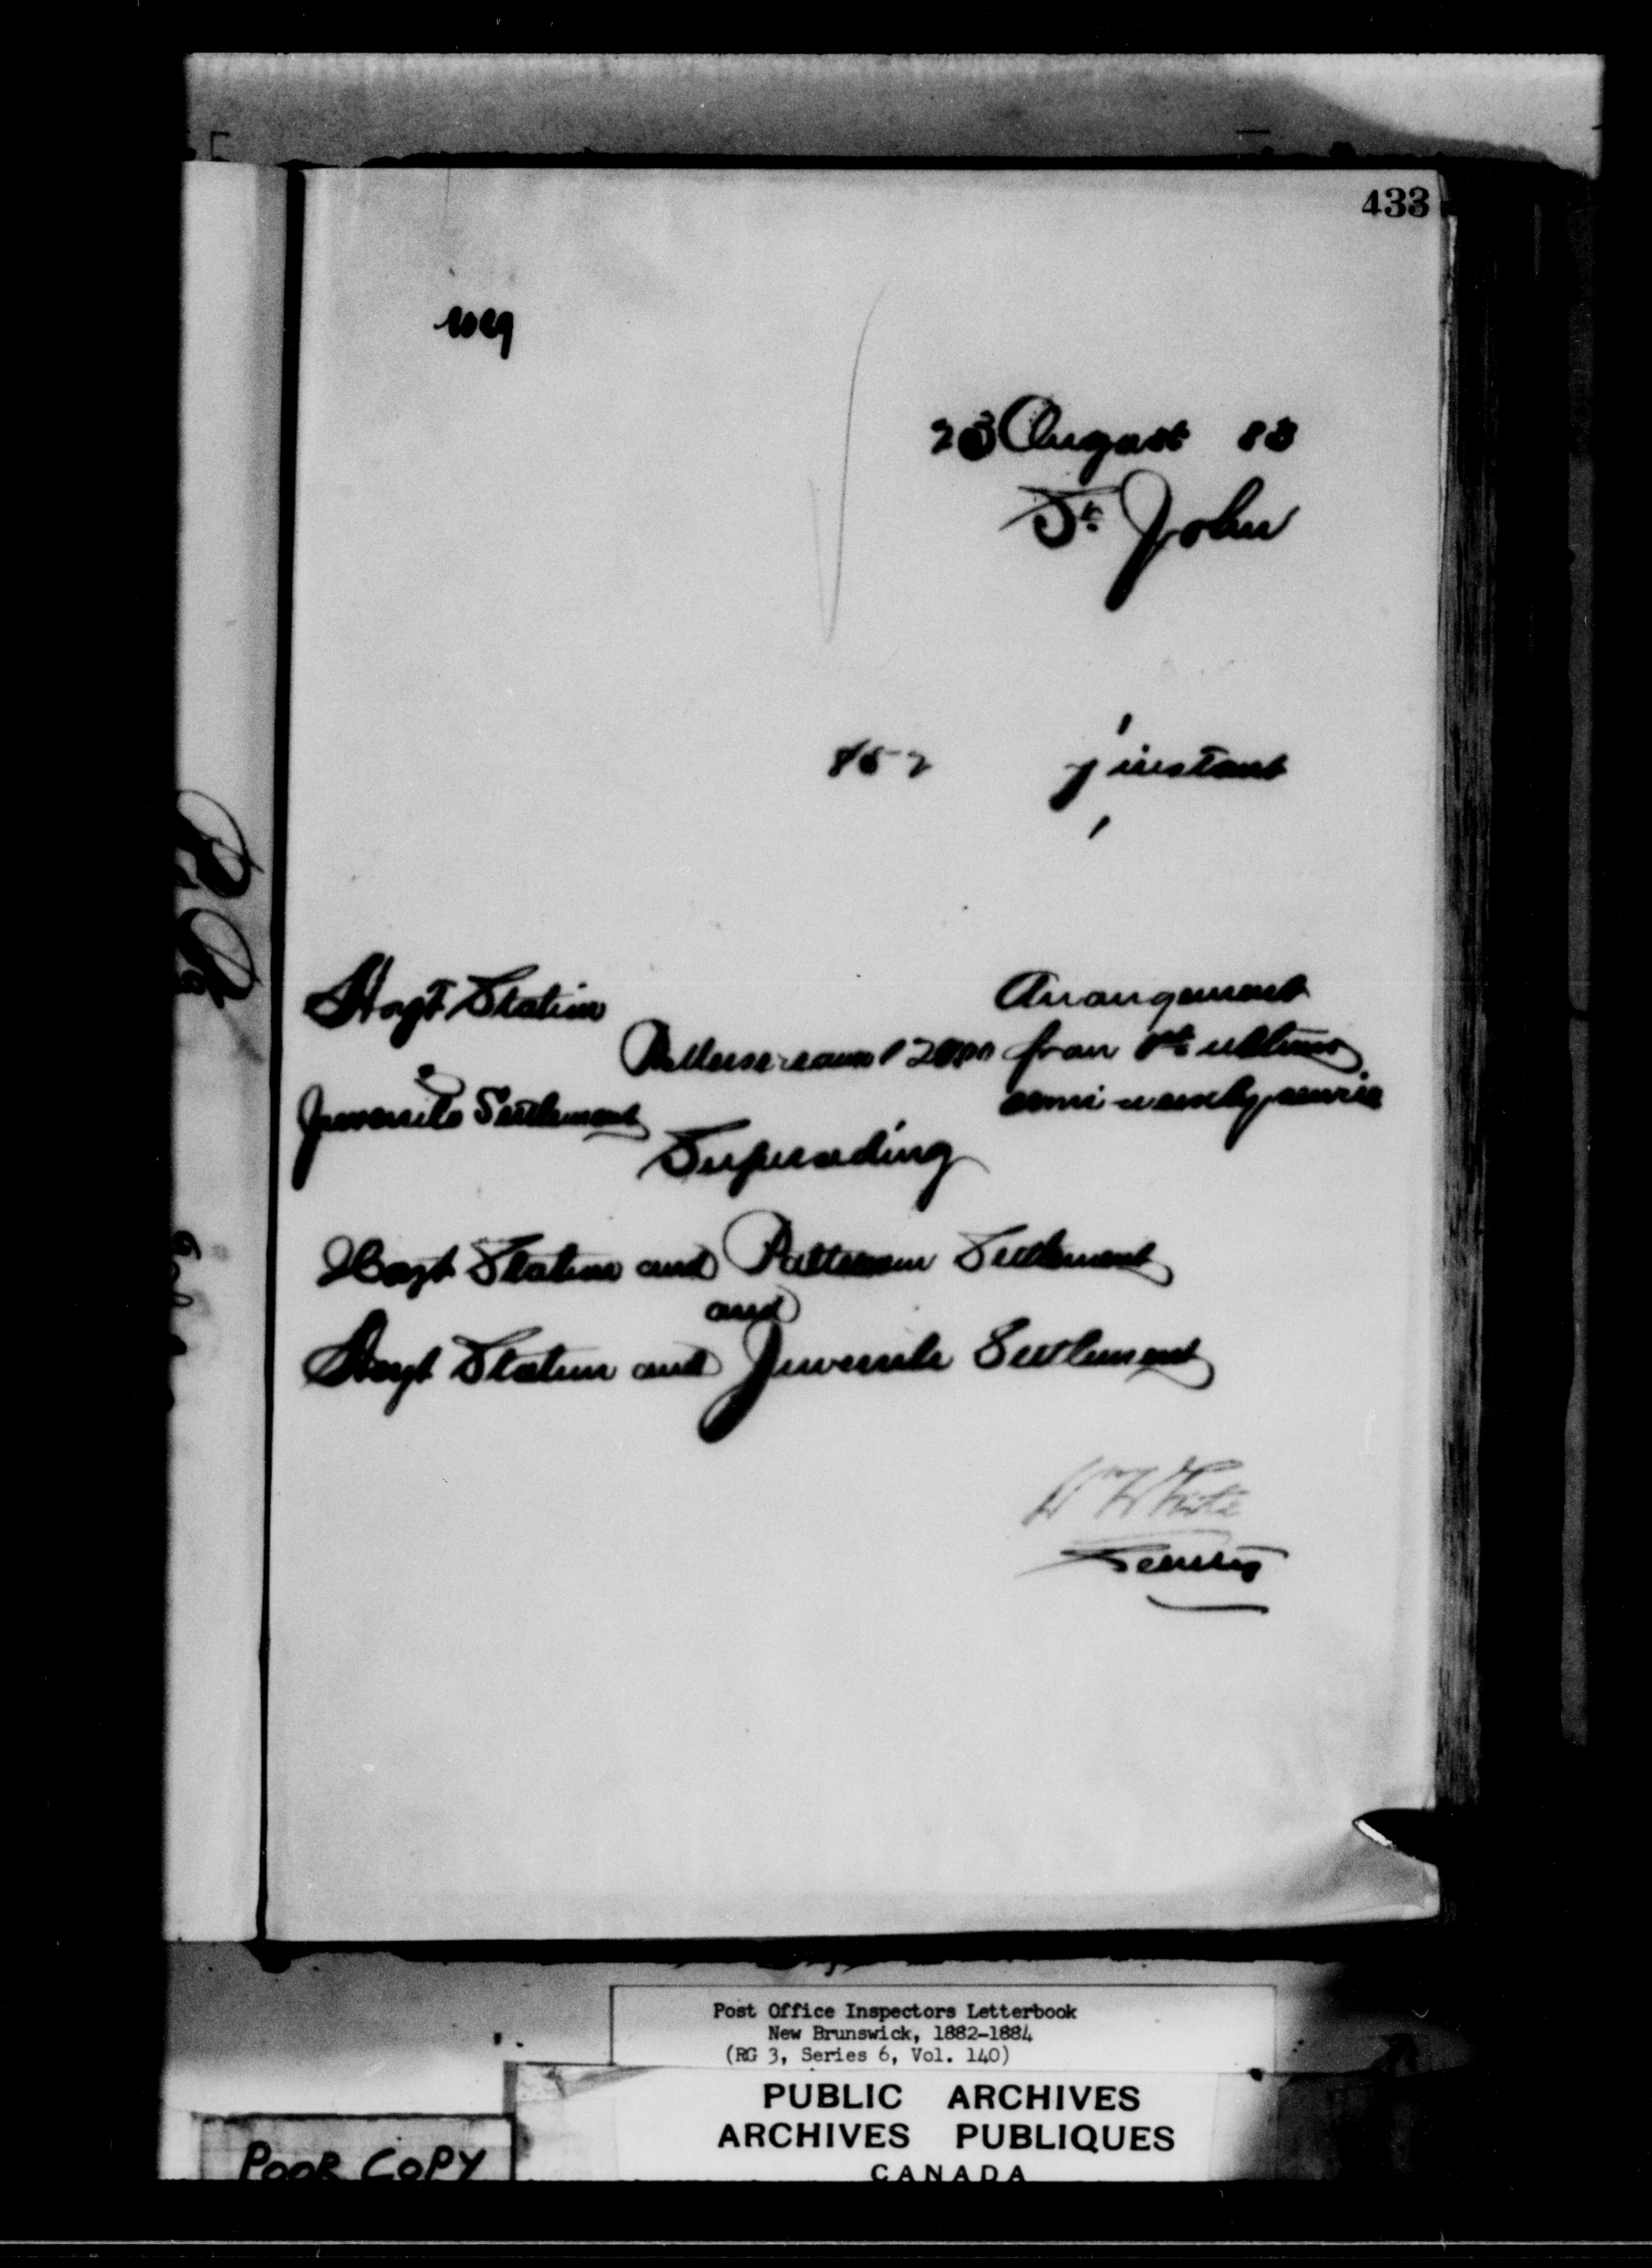 433
23 August 83
St John
852 7 instant
Hoyt Station
Arrangement
from 1st ultimo
Juvenile Settlement
semi-weekly service
Superseding
Hoyt Station and Patterson Settlement
and
Hoyt Station and Juvenile Settlement
Wm White
Secretary
Post Office Inspectors Letterbook
New Brunswick, 1882-1884
(RG 3, Series 6, Vol. 140)
PUBLIC ARCHIVES
ARCHIVES PUBLIQUES
CANADA
POOR COPY